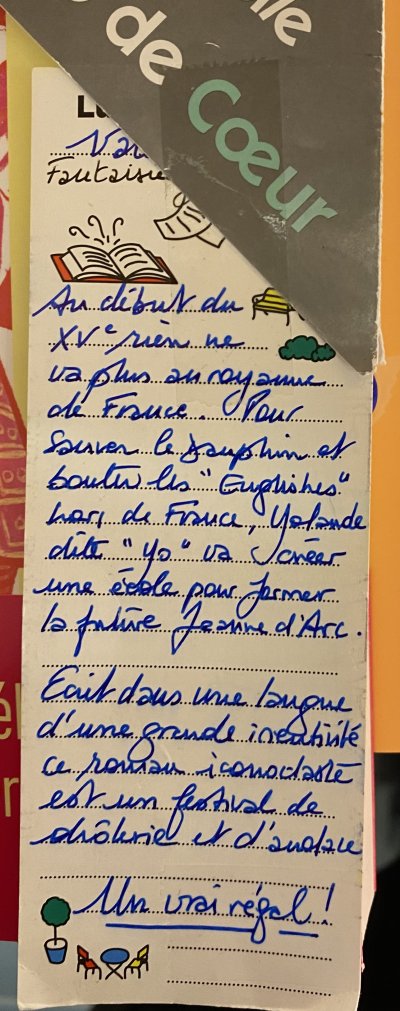 de Cœur
Fantaisie
Au début du
XVe rien ne
va plus au royaume
de France. Pour
sauver le dauphin et
bouter les "Englishes"
hors de France, Yolande
dite "Yo" va créer
une école pour former
la future Jeanne d'Arc.
Ecrit dans une langue
d'une grande inventivité
ce roman iconoclaste
est un festival de
drôlerie et d'audace
Un vrai régal !